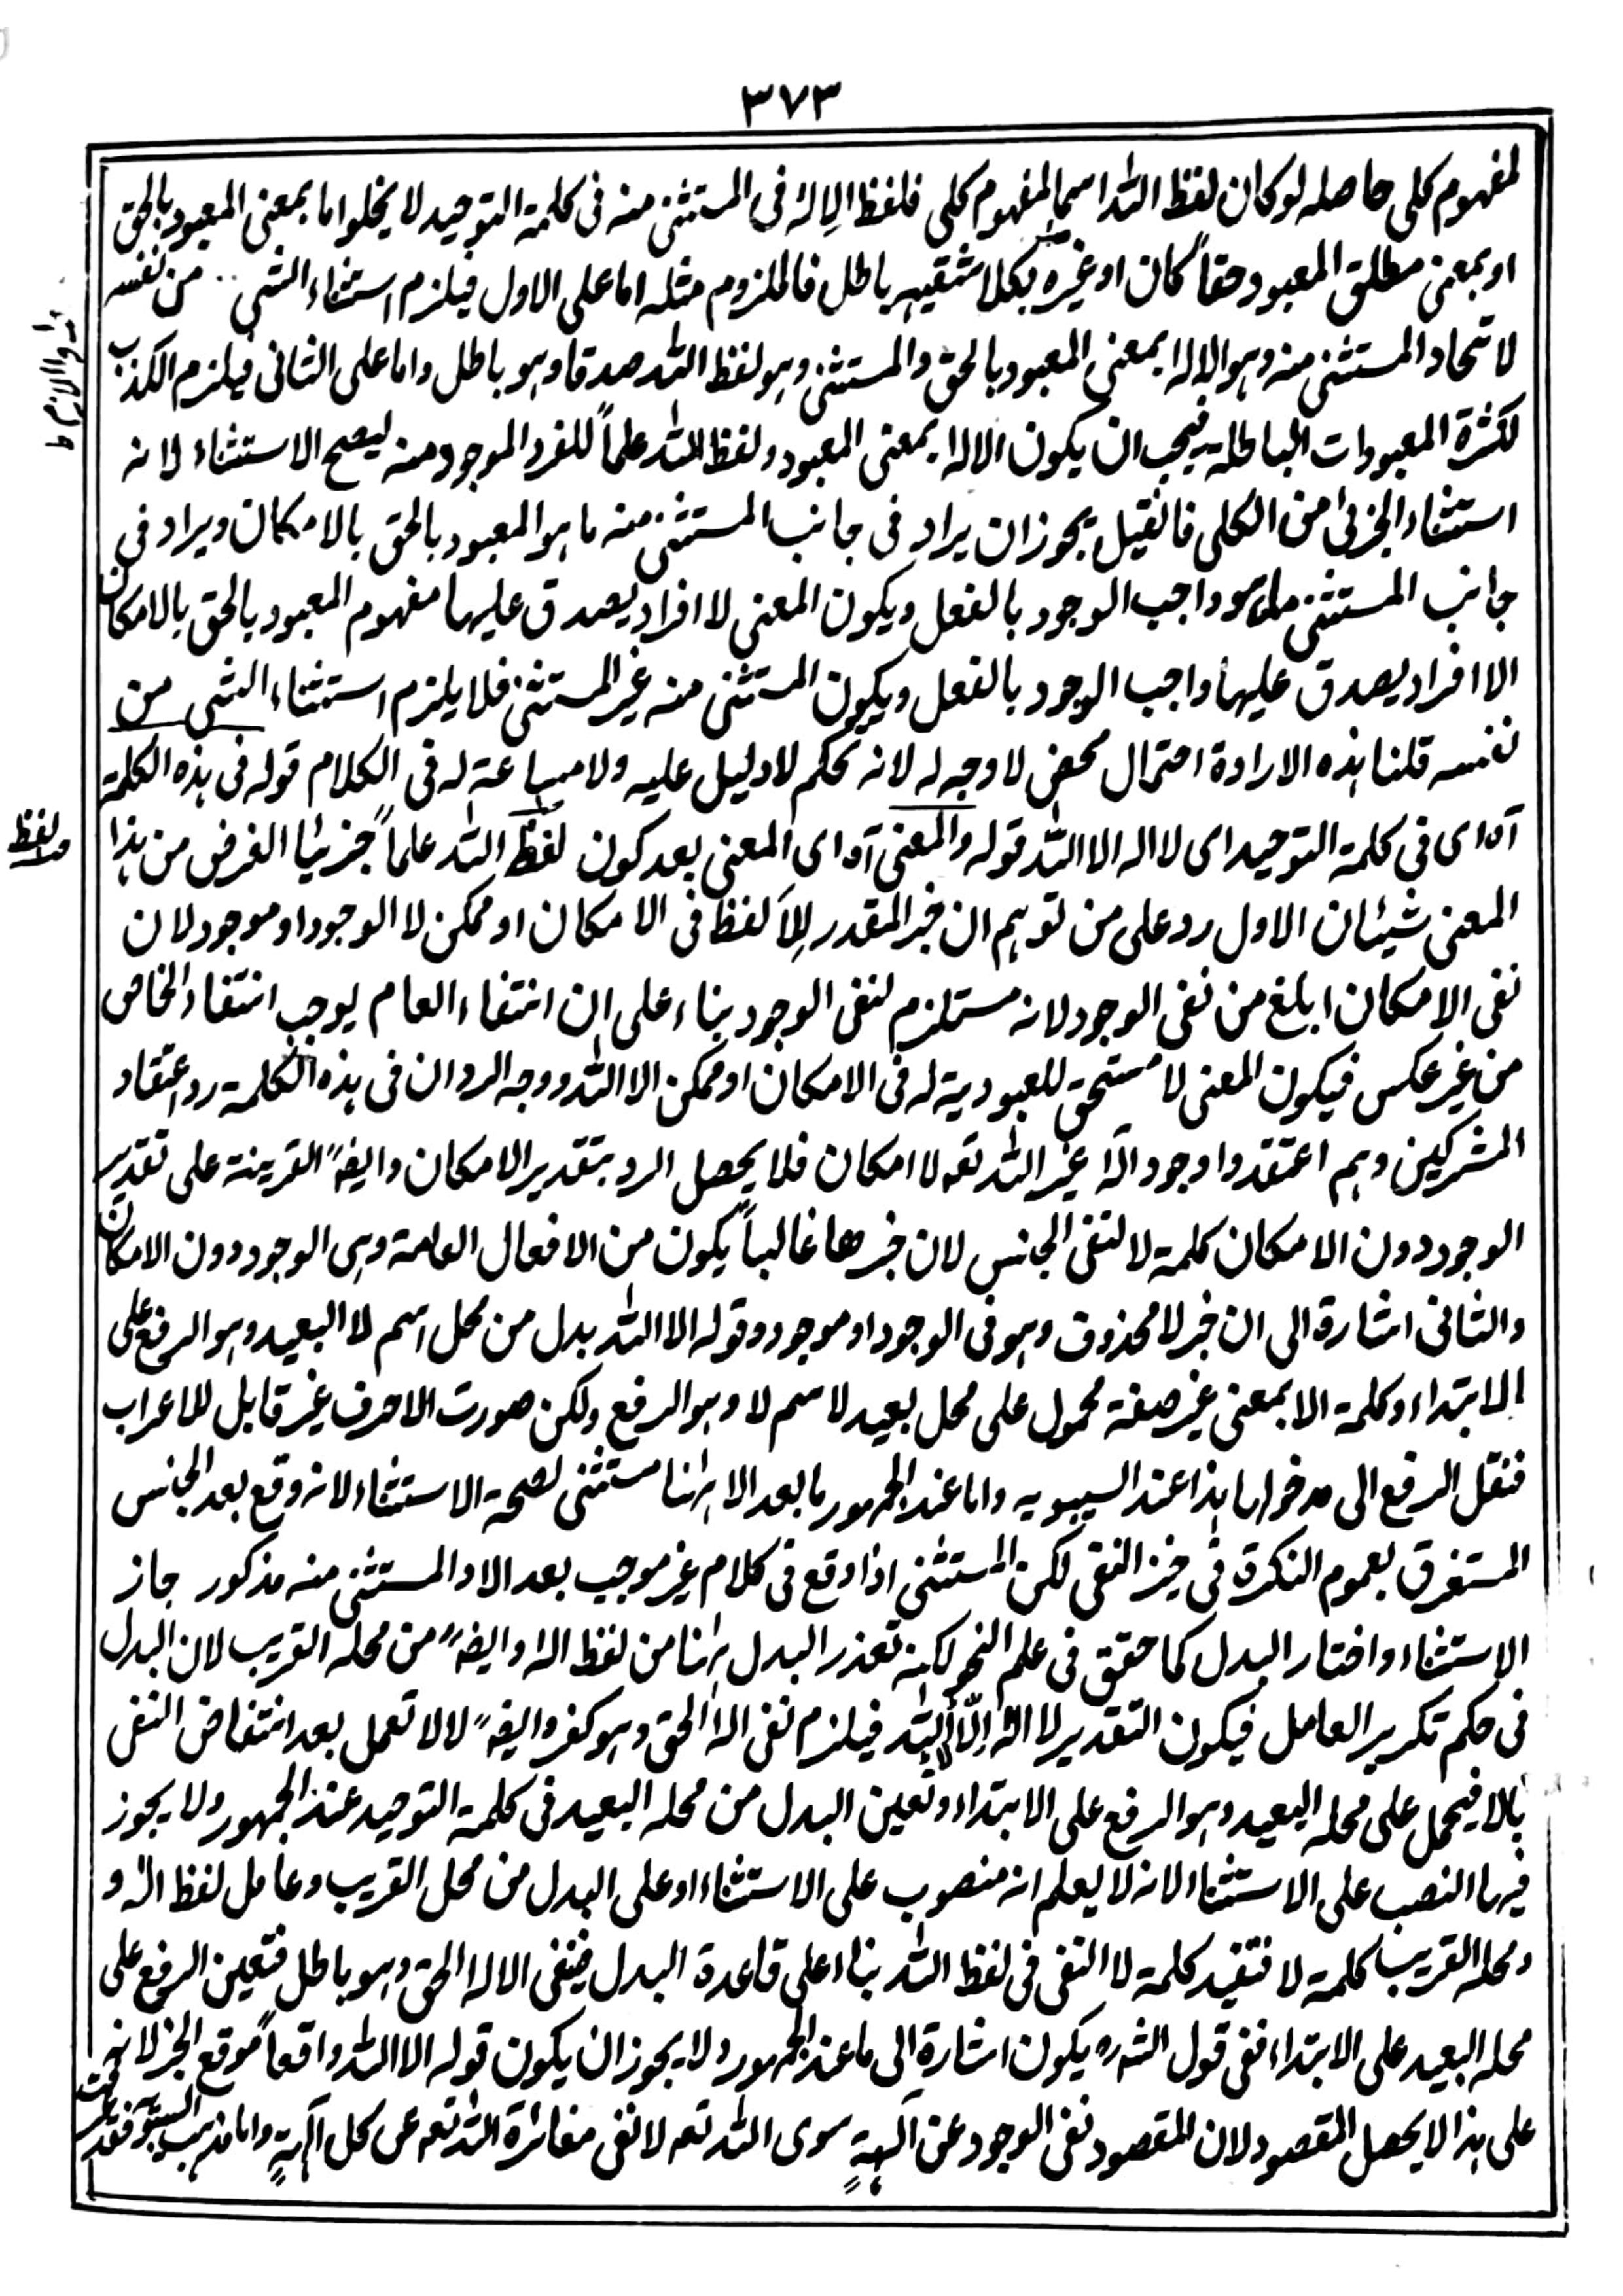 ٣٧٣
لمفهوم كلى حاصله لو كان لفظ الله اسما لمفهوم كلى فلفظ الإله فى المستثنى منه فى كلمة التوحيد لا يخلو اما بمعنى المعبود بالحق
او بمعنى مطلق المعبود حقاً كان او غيره بكلا شقيه باطل فالملزوم مثله اما على الاول فيلزم استثناء الشى من نفسه
لاتحاد المستثنى منه وهو الاله بمعنى المعبود بالحق والمستثنى وهو لفظ الله صدقا وهو باطل واما على الثانى فيلزم الكذب
لكثرة المعبودات الباطلة فيجب ان يكون الاله بمعنى المعبود ولفظ الله علماً للفرد الموجود منه ليصح الاستثناء لانه
استثناء الجزئى من الكلى فانقيل يجوز ان يراد فى جانب المستثنى منه ما هو المعبود بالحق بالامكان ويراد فى
جانب المستثنى ما هو واجب الوجود بالفعل ويكون المعنى لا افراد يصدق عليها مفهوم المعبود بالحق بالامكان
الا افراد يصدق عليها واجب الوجود بالفعل ويكون المستثنى منه غير المستثنى فلا يلزم استثناء الشى من
نفسه قلنا هذه الارادة احتمال محض لا وجه له لانه تحكم لا دليل عليه ولا مساعة له فى الكلام قوله فى هذه الكلمة
آه اى فى كلمة التوحيد اى لا اله الا الله قوله والمعنى آه اى المعنى بعد كون لفظ الله علماً جزئيا الغرض من هذا
لفظ
المعنى شيئان الاول رد على من توهم ان خبر المقدر للا لفظ فى الامكان او ممكن لا الوجود او موجود لان
نفى الامكان ابلغ من نفى الوجود لانه مستلزم لنفى الوجود بناء على ان انتفاء العام يوجب انتفاء الخاص
من غير عكس فيكون المعنى لا مستحق للعبودية له فى الامكان او ممكن الا الله ووجه الرد ان فى هذه الكلمة رد اعتقاد
المشركين وهم اعتقدوا وجود آله غير الله تعه لا امكان فلا يحصل الرد بتقدير الامكان وايضہ القرينة على تقدير
الوجود دون الامكان كلمة لا لنفى الجنس لان خبرها غالباً يكون من الافعال العامة وهى الوجود دون الامكان
والثانى اشارة الى ان خبر لا محذوف وهو فى الوجود او موجود وقوله الا الله بدل من محل اسم لا البعيد وهو الرفع على
الابتداء وكلمة الا بمعنى غير صفة محمول على محل بعيد لاسم لا وهو الرفع ولكن صورت الا حرف غير قابل للاعراب
فنقل الرفع الى مدخولها هذا عند السيبويه واما عند الجمهور ما بعد الا ههنا مستثنى لصحة الاستثناء لانه وقع بعد الجنس
المستغرق بعموم النكرة فى حيز النفى لكن المستثنى اذا وقع فى كلام غير موجب بعد الا والمستثنى منه مذكور جاز
الاستثناء واختار البدل كما حقق فى علم النحو لكنه تعذر البدل ههنا من لفظ اله وايضہ من محله القريب لان البدل
فى حكم تكرير العامل فيكون التقدير لا اله إلّا لا الله فيلزم نفى اله الحق وهو كفر وايضہ لا لا تعمل بعد انتقاض النفى
بالا فيحمل على محله البعيد وهو الرفع على الابتداء وتعين البدل من محله البعيد فى كلمة التوحيد عند الجمهور ولا يجوز
فيها النصب على الاستثناء لانه لا يعلم انه منصوب على الاستثناء او على البدل من محل القريب وعامل لفظ اله و
ومحله القريب كلمة لا فتفيد كلمة لا النفى فى لفظ الله بناء على قاعدة البدل فينفى الاله الحق وهو باطل فتعين الرفع على
محله البعيد على الابتداء ففى قول الشه ره يكون اشارة الى ما عند الجمهور ولا يجوز ان يكون قوله الا الله واقعاً موقع الخبر لانه
على هذا لا يحصل المقصود لان المقصود نفى الوجود عن آلهةٍ سوى الله تعه لا نفى مغائرة الله تعه عن كل آلهةٍ واما مذهب